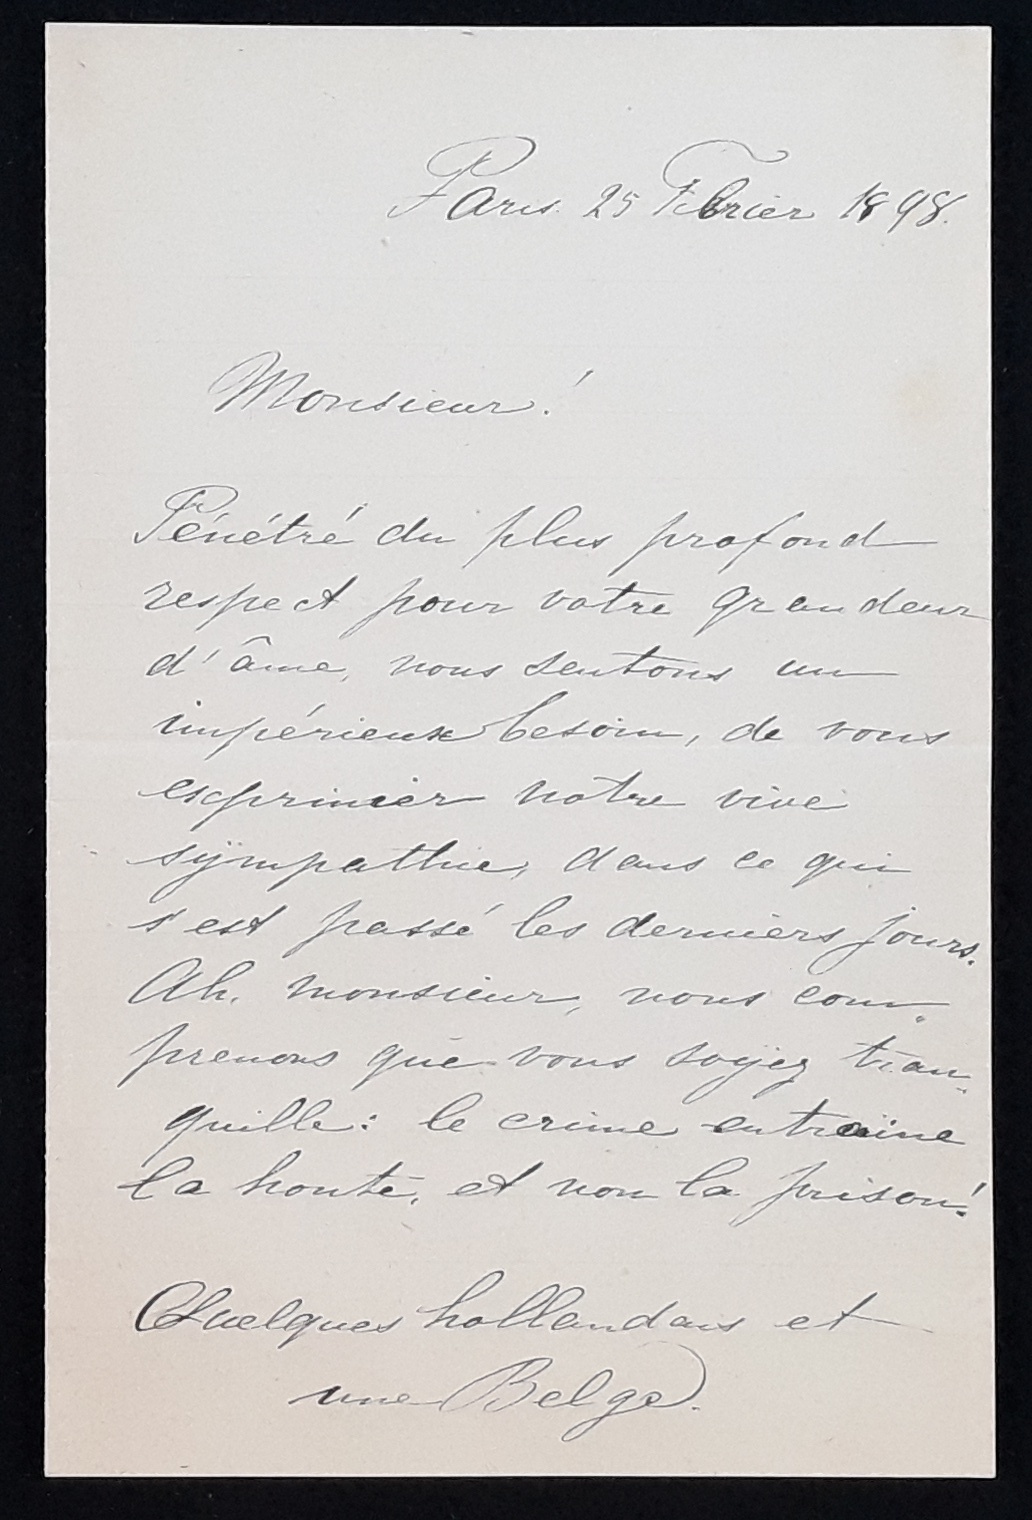 Paris 25 Febrier 1898.
Monsieur!
Pénétré du plus profond
respect pour votre grandeur
d'âme, nous sentons un
impérieux besoin, de vous
exprimer notre vive
sympathie, dans ce qui
s'est passé les derniers jours.
Ah. monsieur, nous com-
prenons que vous soyez tran-
quille: le crime entraine
la honte, et non la prison!
Quelques hollandais et
une Belge.